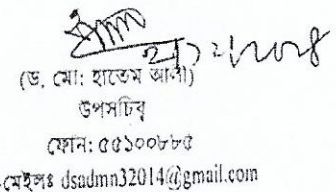 (ড. মো: হাতেম আলী)
উপসচিব
ফোন: ৫৫১০০৮৮৫
মেইলঃ dsadmn32014@gmail.com